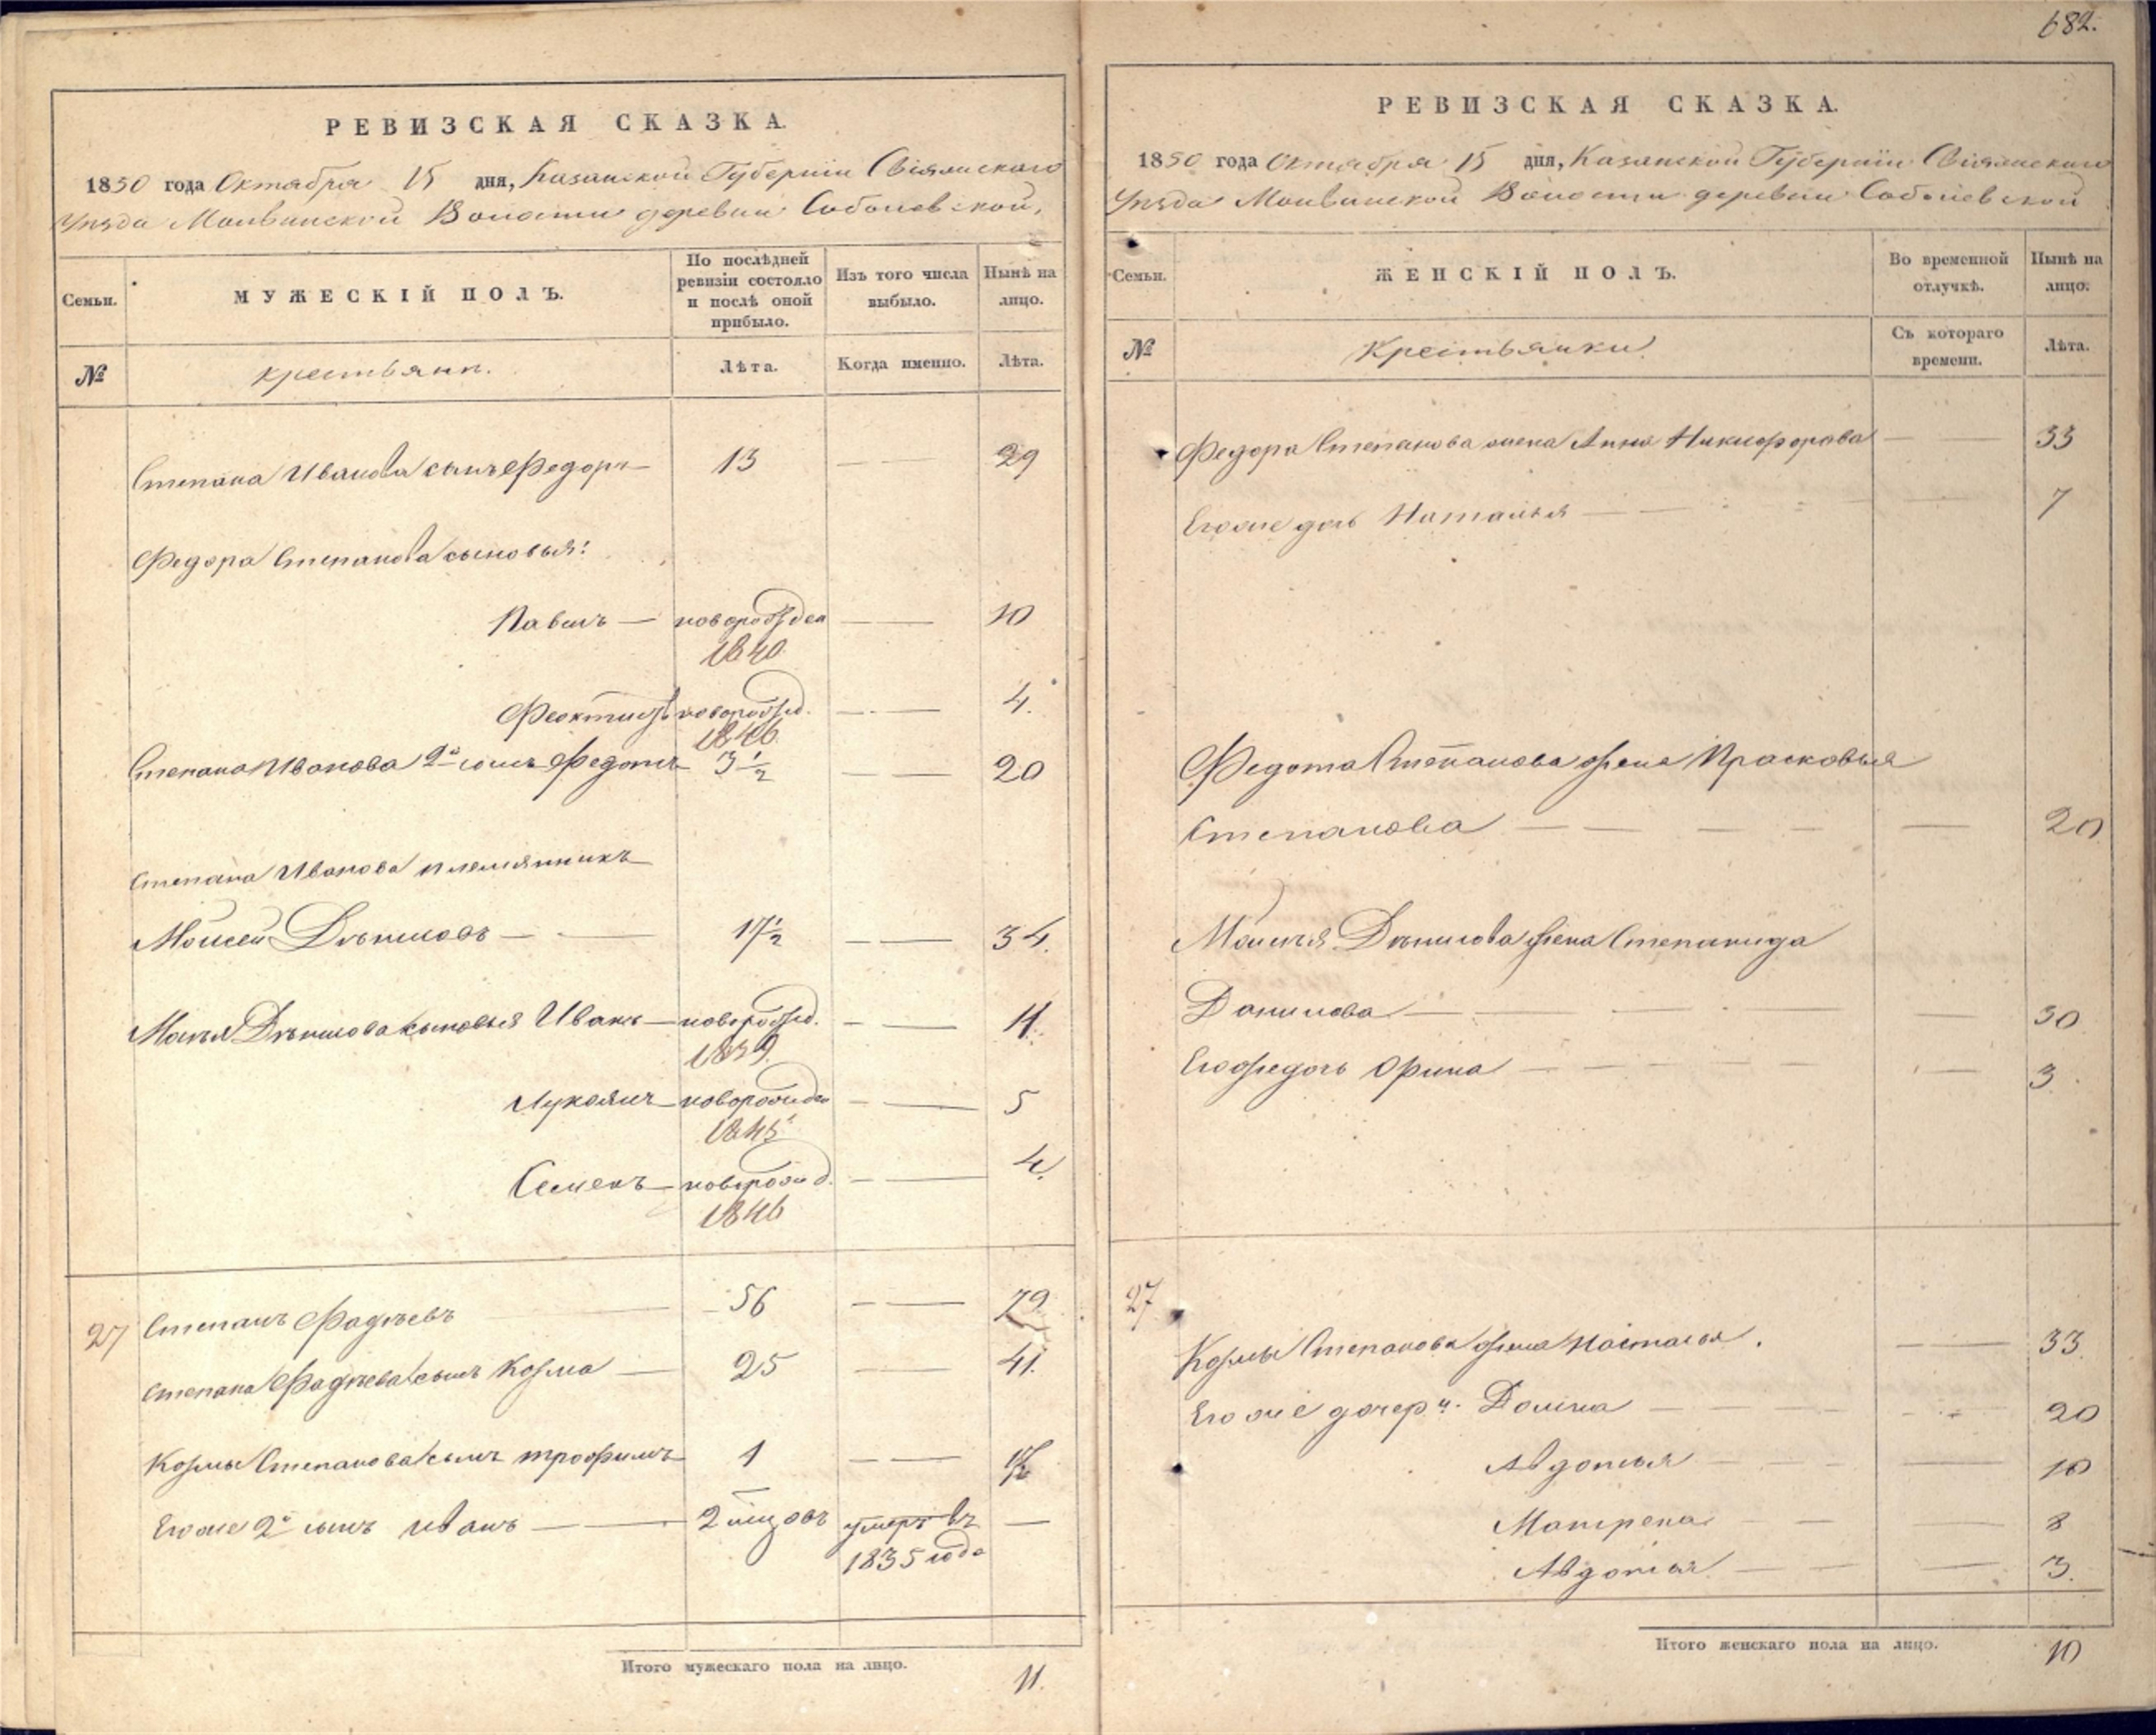 682.
РЕВИЗСКАЯ СКАЗКА.
1850 года Октября 15 дня, Казанской Губерніи Свіяжскаго
Уѣзда Молвинской Волости деревни Соболевской,
Семьи.
МУЖЕСКІЙ ПОЛЪ.
По послѣдней ревизіи состояло и послѣ оной прибыло.
Изъ того числа выбыло.
Нынѣ на лицо.
№
крестьянъ.
Лѣта.
Когда именно.
Лѣта.
Степана Иванова сынъ Федоръ — 13 — — 29
Федора Степанова сыновья:
Павилъ — новорожден — — 10
1840.
Феоктистъ новорожд. — — 4.
1846.
Степана Иванова 2й сынъ Федотъ 3 1/2 — — 20
Степана Иванова племянникъ
Моисей — — 17 1/2 — — 34.
сыновья Иванъ — новорожд. — — 11.
1839.
Лукоянъ — новорожден — — 5
1845
Семенъ — новорожд. — — 4.
1846
27 Степанъ Фадѣевъ — 56 — — 79.
Степана Фадѣева сынъ Козма — 25 — — 41.
Козмы Степанова сынъ трофимъ 1 — —
Его же 2й сынъ иванъ — — 2 мѣсцовъ умеръ въ —
1835 года
Итого мужескаго пола на лицо. 11.
РЕВИЗСКАЯ СКАЗКА.
1850 года Октября 15 дня, Казанской Губерніи Свіяжскаго
Уѣзда Молвинской Волости деревни Соболевской
Семьи.
ЖЕНСКІЙ ПОЛЪ.
Во временной отлучкѣ.
Нынѣ на лицо.
№
Крестьянки.
Съ котораго времени.
Лѣта.
Федора Степанова жена Анна Никифорова — — 33
Его же дочь Наталья — — 7
Федота Степанова жена Прасковья
Степанова — — — — — 20
жена Степанида
Данилова — — — — — 30
Его же дочь Орина — — — — — 3.
27.
Козмы Степанова жена Настасья. — — 33.
Его же дочери. Домна — — — 20
Авдотья — — — 10
Матрена — — — 8
Авдотья — — — 3.
Итого женскаго пола на лицо. 10